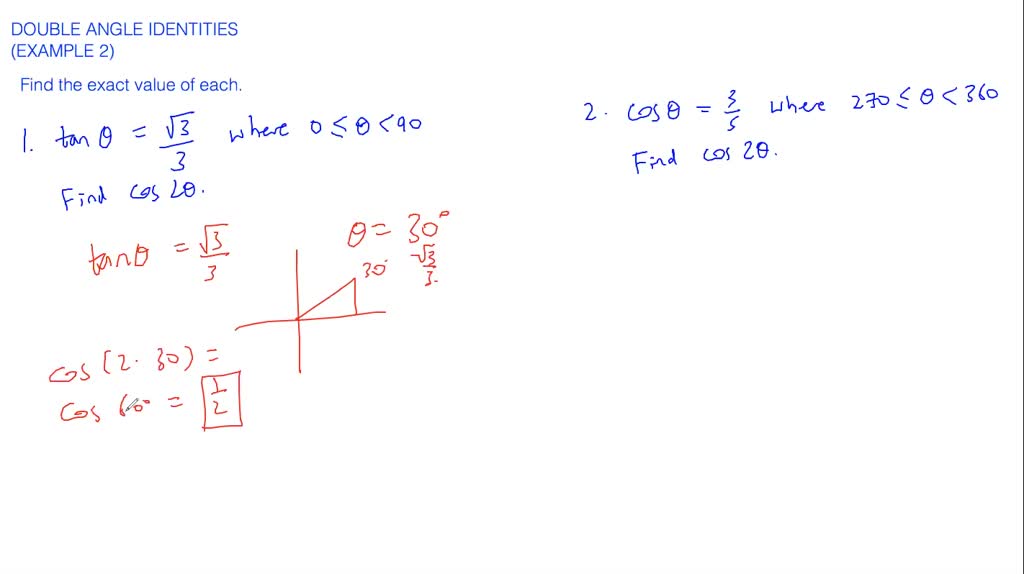 DOUBLE ANGLE IDENTITIES
(EXAMPLE 2)
Find the exact value of each.
1. tan θ = √3/3 where 0 ≤ θ < 90
Find cos 2θ.
tan θ = √3/3
θ = 30°
30° √3/3.
cos (2 · 30) =
cos 60° = 1/2
2. cos θ = 3/5 where 270 ≤ θ < 360
Find cos 2θ.